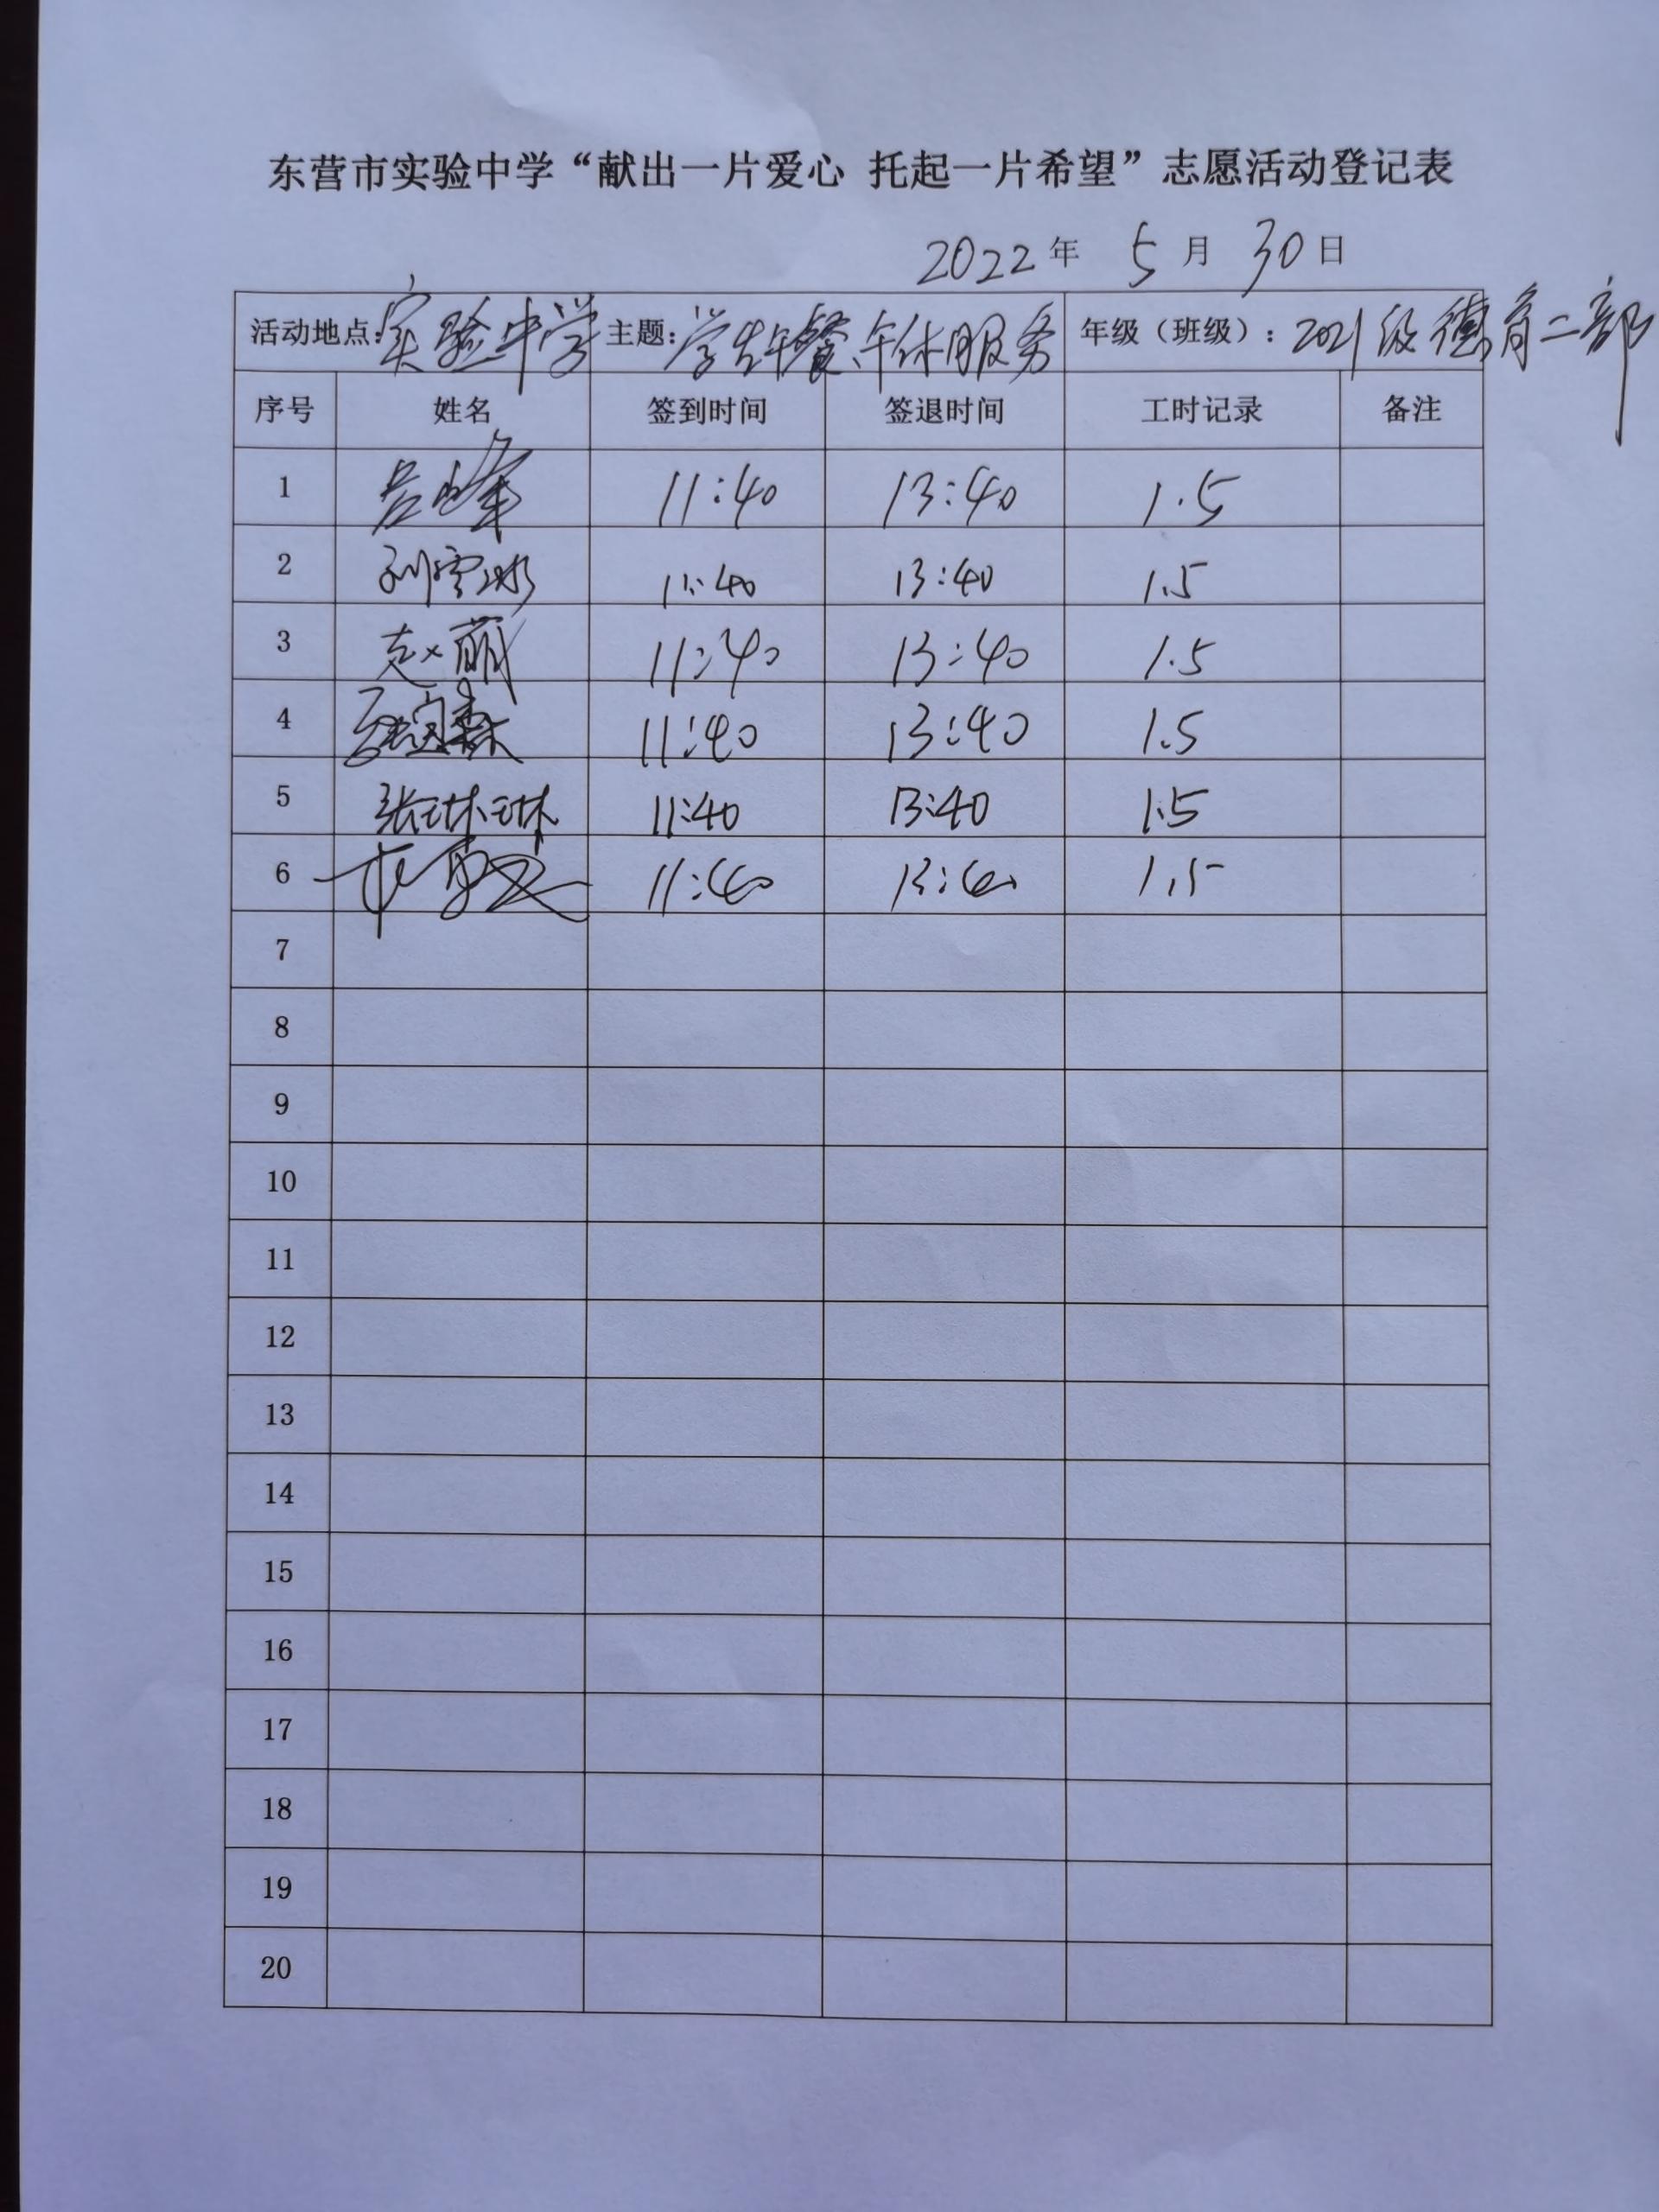 东营市实验中学“献出一片爱心 托起一片希望”志愿活动登记表
2022年 5月 30日
活动地点:实验中学 主题:学生午餐、午休服务 年级（班级）：2021级德育二部
序号 姓名 签到时间 签退时间 工时记录 备注
1 11:40 13:40 1.5
2 11:40 13:40 1.5
3 赵萌 11:40 13:40 1.5
4 11:40 13:40 1.5
5 张琳琳 11:40 13:40 1.5
6 11:40 13:40 1.5
7
8
9
10
11
12
13
14
15
16
17
18
19
20